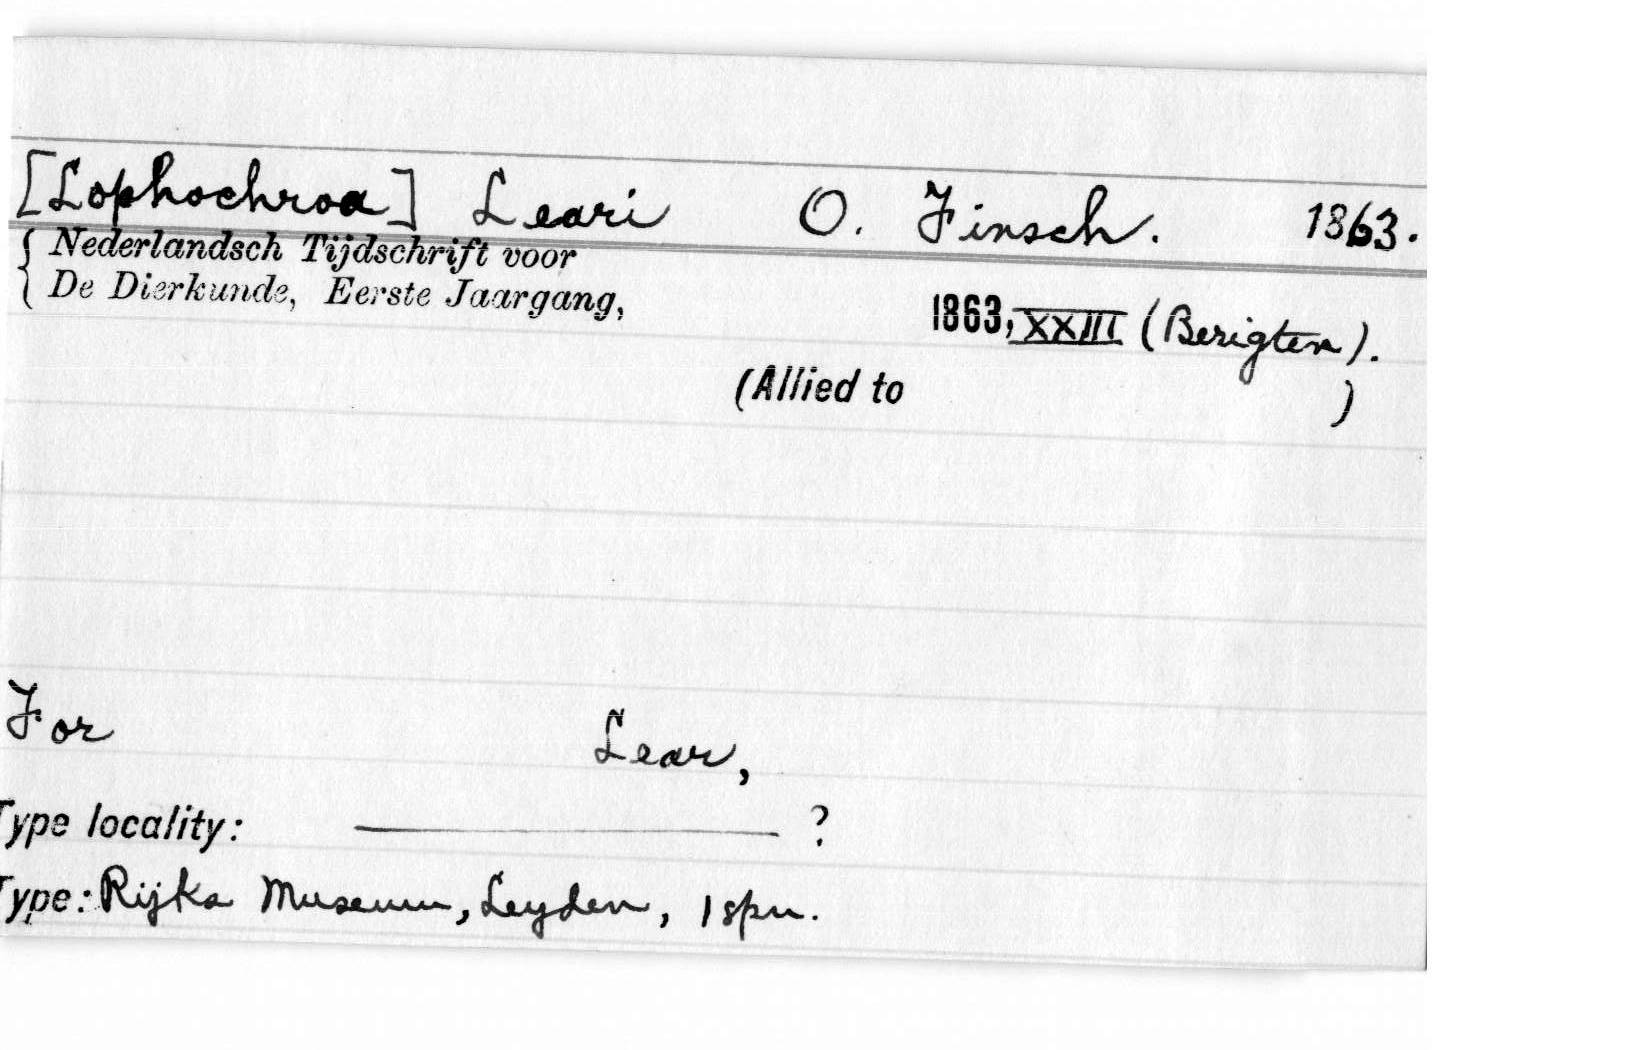 [Lophochroa] Leari O. Finsch. 1863.
{ Nederlandsch Tijdschrift voor
{ De Dierkunde, Eerste Jaargang,
1863, XXIII (Berigten).
(Allied to )
For Lear,
Type locality: ——— ?
Type: Rijks Museum, Leyden, 1 spn.